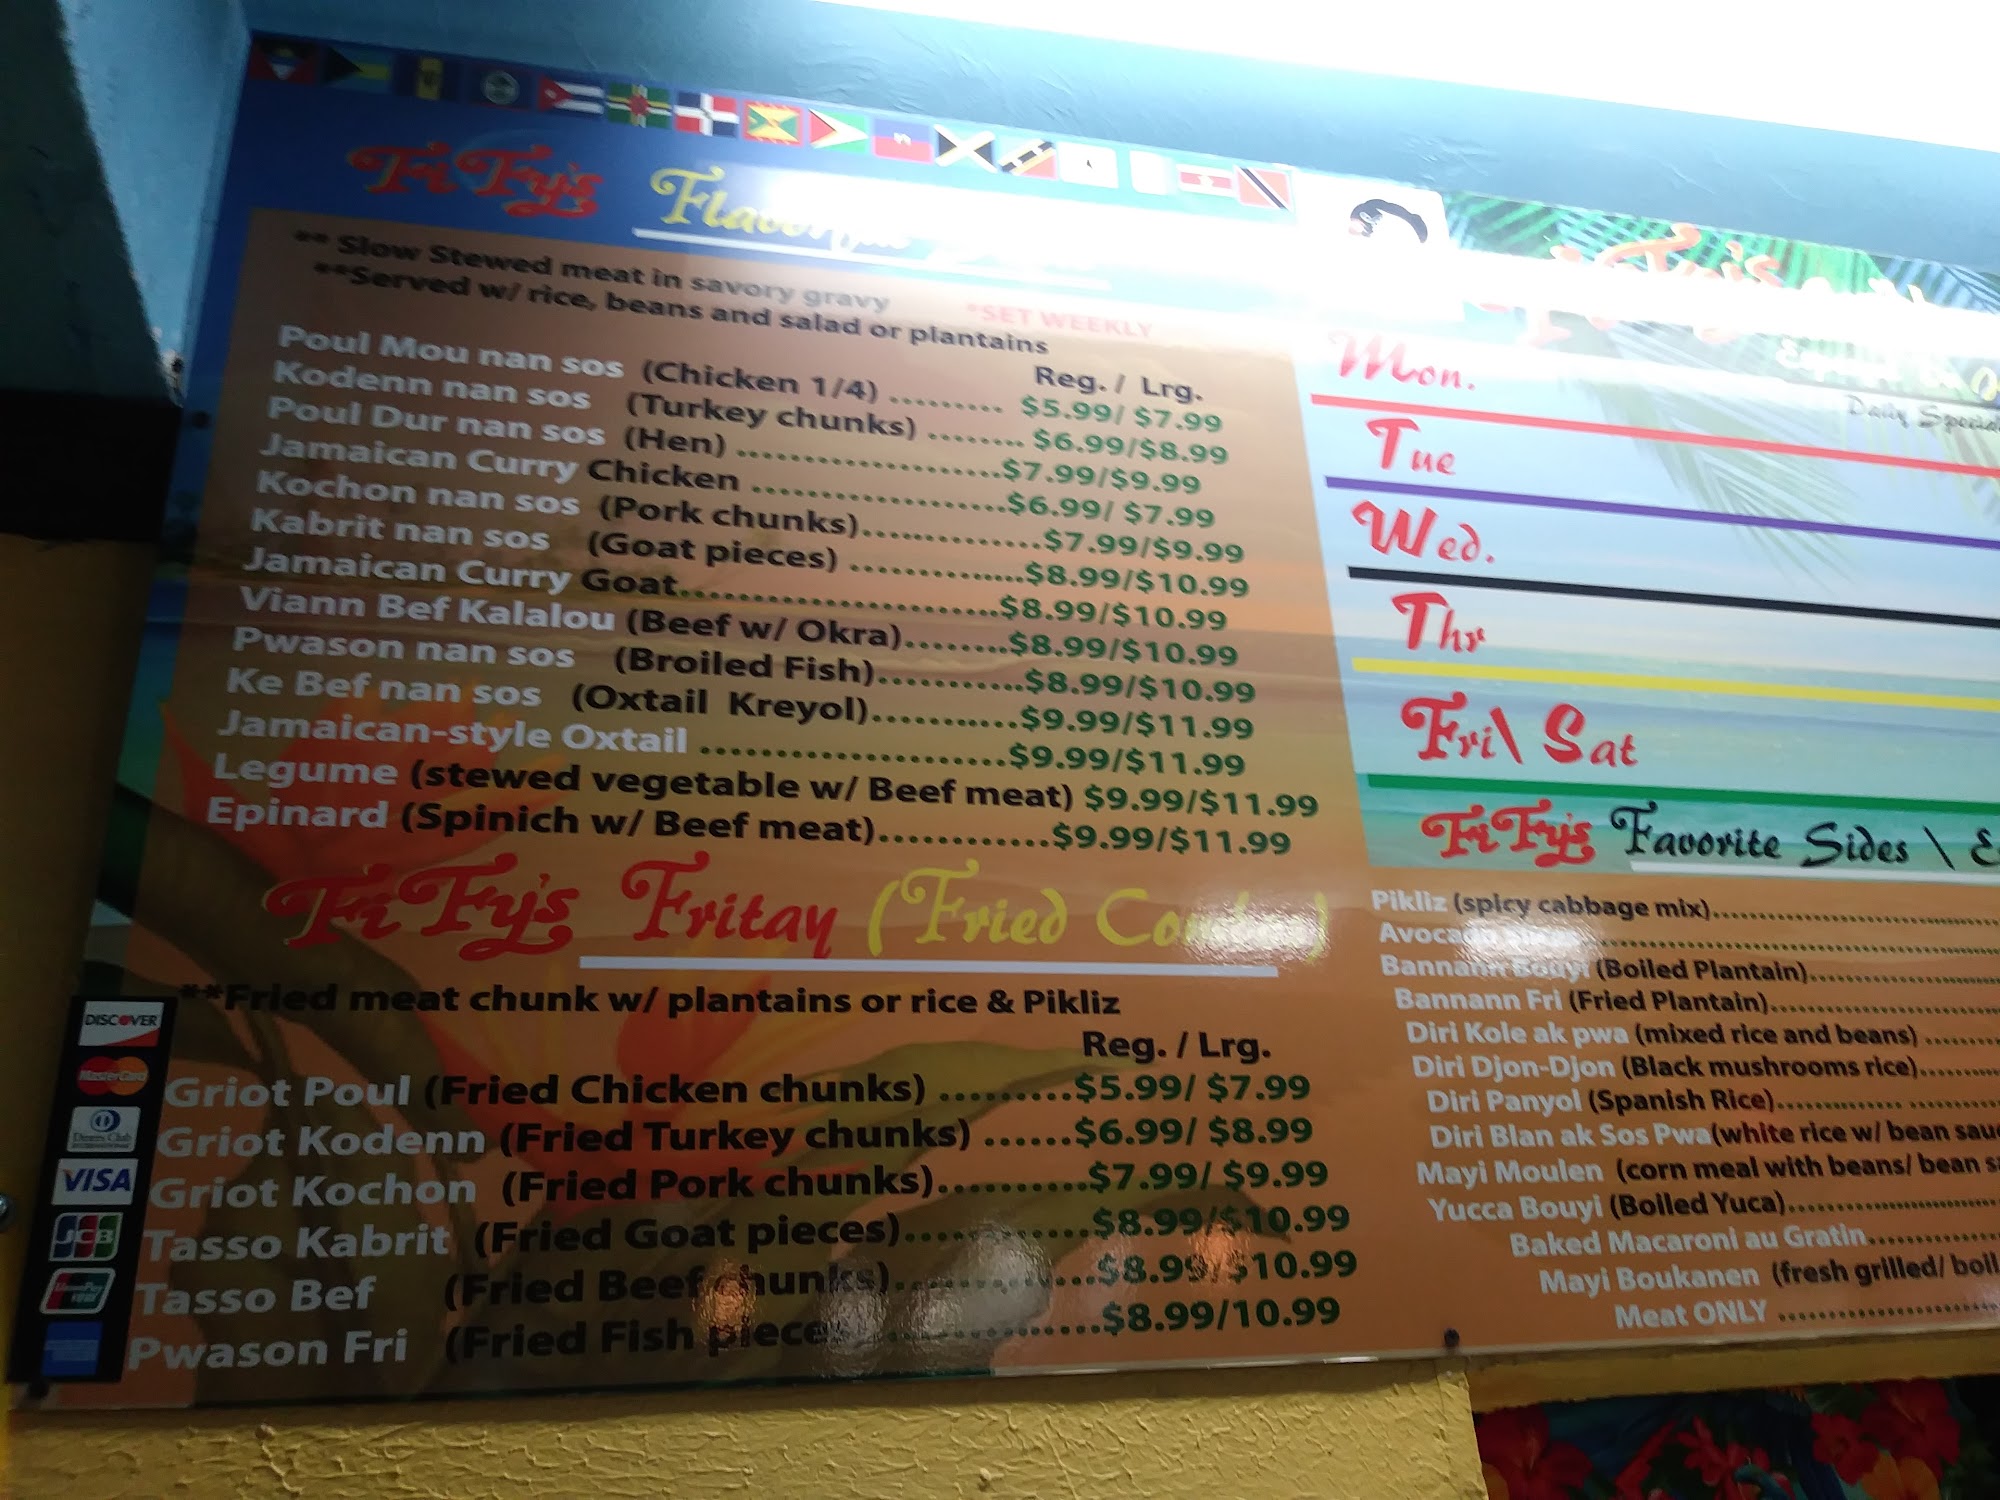 FiFy's Flavorful
** Slow Stewed meat in savory gravy
*SET WEEKLY
**Served w/ rice, beans and salad or plantains
Reg. / Lrg.
Poul Mou nan sos (Chicken 1/4) ......... $5.99/ $7.99
Kodenn nan sos (Turkey chunks) ........ $6.99/$8.99
Poul Dur nan sos (Hen) ......................$7.99/$9.99
Jamaican Curry Chicken .....................$6.99/ $7.99
Kochon nan sos (Pork chunks)...............$7.99/$9.99
Kabrit nan sos (Goat pieces) ...............$8.99/$10.99
Jamaican Curry Goat..........................$8.99/$10.99
Viann Bef Kalalou (Beef w/ Okra).........$8.99/$10.99
Pwason nan sos (Broiled Fish)............$8.99/$10.99
Ke Bef nan sos (Oxtail Kreyol)............$9.99/$11.99
Jamaican-style Oxtail .........................$9.99/$11.99
Legume (stewed vegetable w/ Beef meat) $9.99/$11.99
Epinard (Spinich w/ Beef meat)..............$9.99/$11.99
FiFy's Fritay (Fried Combo)
**Fried meat chunk w/ plantains or rice & Pikliz
Reg. / Lrg.
Griot Poul (Fried Chicken chunks) .........$5.99/ $7.99
Griot Kodenn (Fried Turkey chunks) ......$6.99/ $8.99
Griot Kochon (Fried Pork chunks)..........$7.99/ $9.99
Tasso Kabrit (Fried Goat pieces).............$8.99/$10.99
Tasso Bef (Fried Beef chunks)..............$8.99/$10.99
Pwason Fri (Fried Fish pieces ...............$8.99/10.99
DISCOVER
MasterCard
Diners Club
VISA
JCB
FiFy's
Daily Special
Mon.
Tue
Wed.
Thr
Fri\ Sat
FiFy's Favorite Sides \
Pikliz (spicy cabbage mix)..............................
Avocado
Bannann Bouyi (Boiled Plantain)....................
Bannann Fri (Fried Plantain).........................
Diri Kole ak pwa (mixed rice and beans) .........
Diri Djon-Djon (Black mushrooms rice)..........
Diri Panyol (Spanish Rice)............. ............
Diri Blan ak Sos Pwa(white rice w/ bean
Mayi Moulen (corn meal with beans/ bean
Yucca Bouyi (Boiled Yuca)...........................
Baked Macaroni au Gratin.................
Mayi Boukanen (fresh grilled/
Meat ONLY .............................